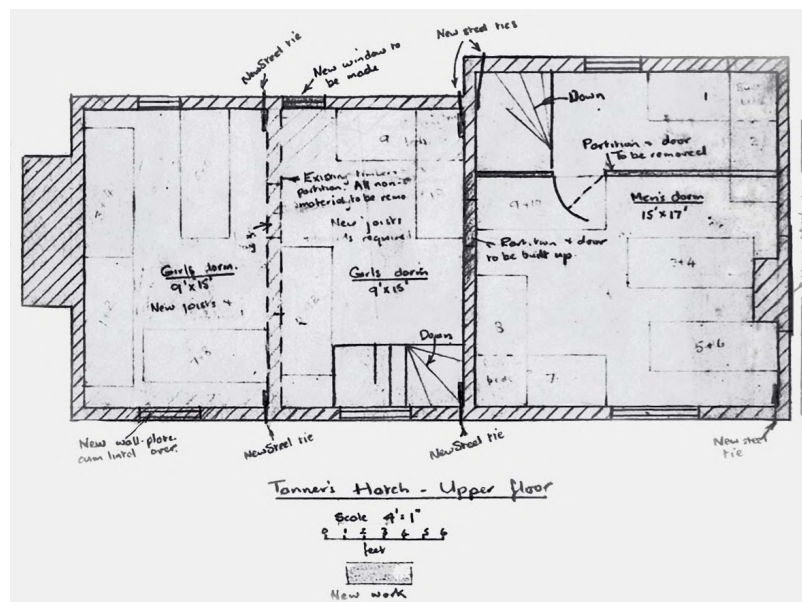 New Steel tie
New window to
be made
New steel ties
Down
1
Partition + door
To be removed
2
9
Existing timber
partition. All non-
material to be
New joists
required
Men's dorm
15' x 17'
9+10
Partition + door
to be built up.
3+4
Girls dorm.
9' x 15'
New joists +
Girls dorm
9' x 15'
8
Down
5+6
7.8
beds
7
New wall-plate
cum lintol over.
New Steel tie
New Steel tie
New steel
tie
Tanner's Hatch - Upper floor
Scale 4' = 1"
0 1 2 3 4 5 6
feet
New work